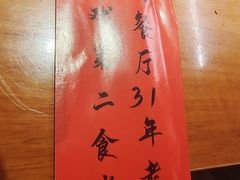 餐厅31年老
第二食